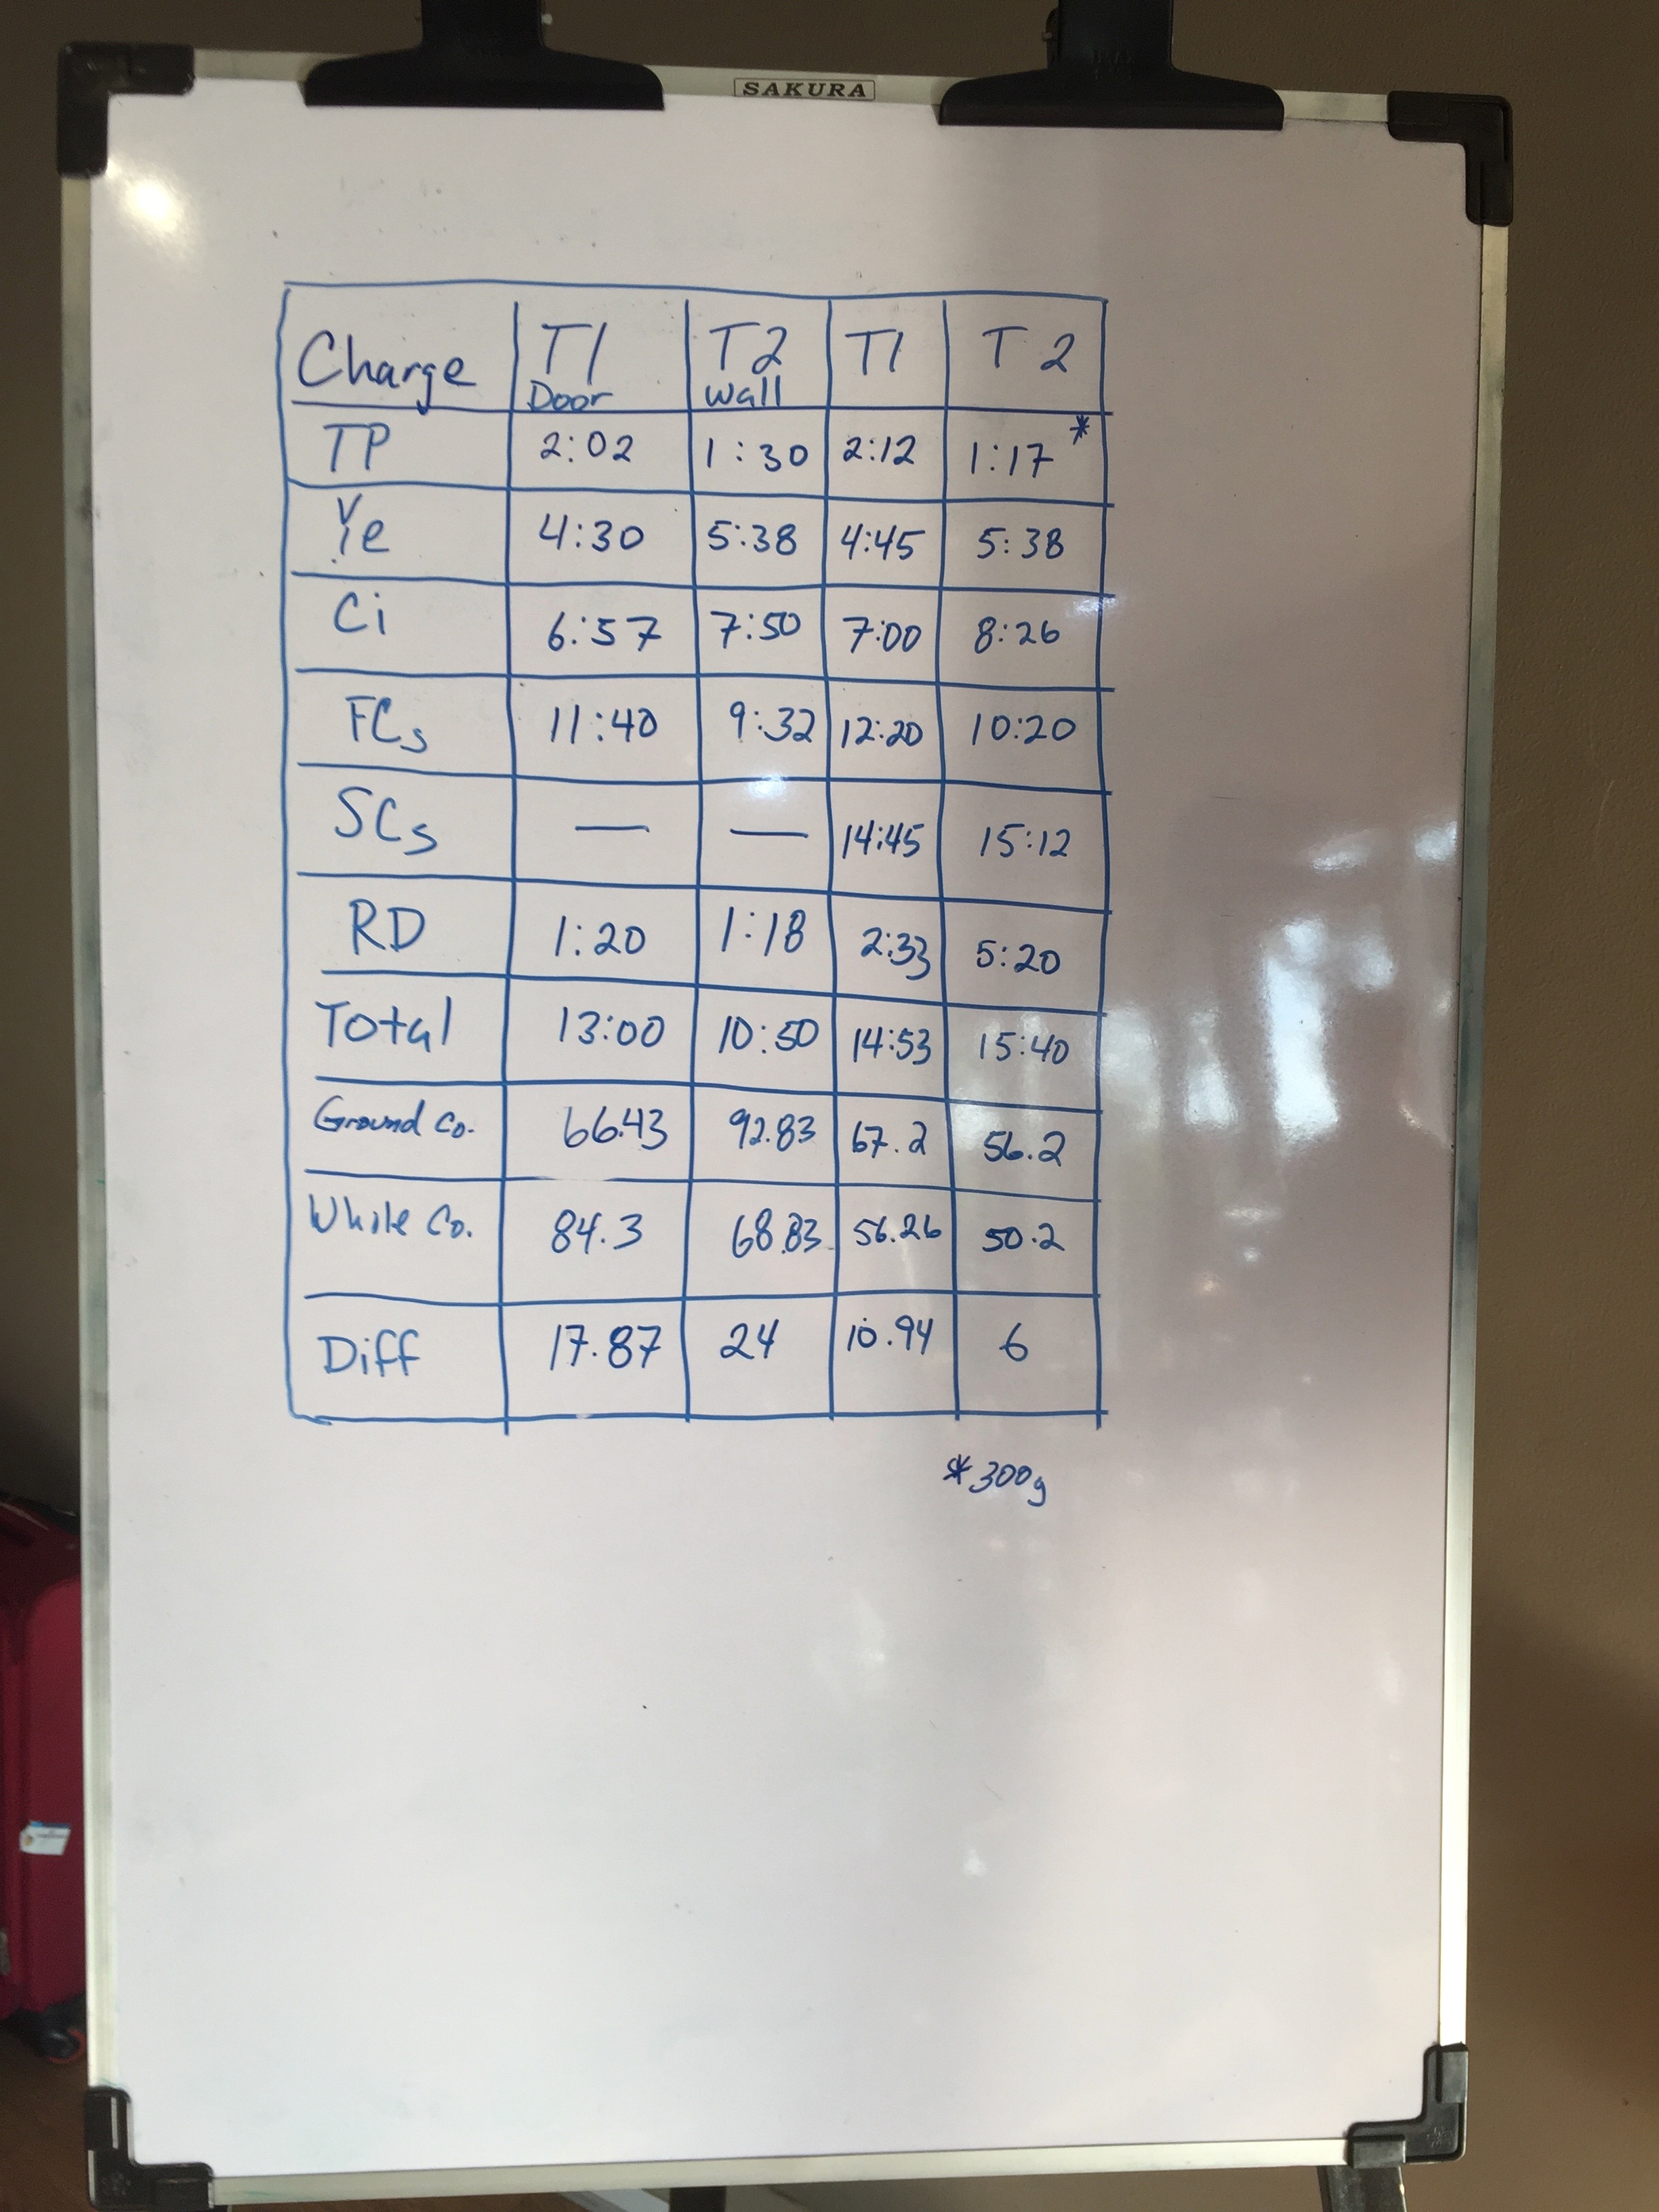 SAKURA
Charge T1 Door T2 Wall T1 T2
TP 2:02 1:30 2:12 1:17*
Ye 4:30 5:38 4:45 5:38
Ci 6:57 7:50 7:00 8:26
FCs 11:40 9:32 12:20 10:20
SCs — — 14:45 15:12
RD 1:20 1:18 2:33 5:20
Total 13:00 10:50 14:53 15:40
Ground Co. 66.43 92.83 67.2 56.2
Whole Co. 84.3 68.83 56.26 50.2
Diff 17.87 24 10.94 6
*300g